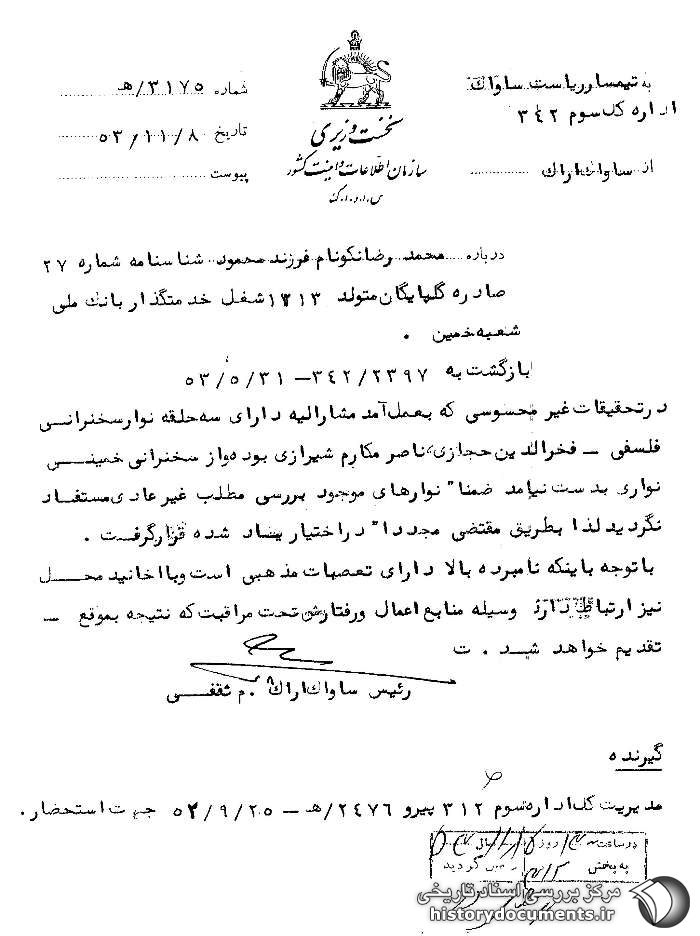 به تیمسار ریاست ساواک
اداره کل سوم ۳۴۲
از ساواک اراک
نخست وزیری
سازمان اطلاعات و امنیت کشور
س.ا.و.ا.ک
شماره ۳۱۷۵/هـ
تاریخ ۵۳/۱۱/۸
پیوست
درباره محمد رضا نکونام فرزند محمود شناسنامه شماره ۲۷
صادره گلپایگان متولد ۱۳۱۳ شغل خدمتگذار بانک ملی
شعبه خمین .
بازگشت به ۳۴۲/۲۳۹۷ – ۵۳/۵/۳۱
در تحقیقات غیر محسوسی که بعمل آمد مشارالیه دارای سه حلقه نوار سخنرانی
فلسفی – فخرالدین حجازی، ناصر مکارم شیرازی بوده و از سخنرانی خمینی
نواری بدست نیامد ضمنا" نوارهای موجود بررسی مطلب غیر عادی مستفاد
نگردید لذا بطریق مقتضی مجددا" در اختیار یاد شده قرار گرفت .
با توجه باینکه نامبرده بالا دارای تعصبات مذهبی است و با اخانید محل
نیز ارتباط دارد وسیله منابع اعمال و رفتارش تحت مراقبت که نتیجه بموقع –
تقدیم خواهد شد . ت
رئیس ساواک اراک . م ثقفی
گیرنده
مدیریت کل اداره سوم ۳۱۲ پیرو ۲۴۷۶/هـ – ۵۲/۹/۲۵ جهت استحضار .
در ساعت روز سال
به بخش گردید
مرکز بررسی اسناد تاریخی
historydocuments.ir